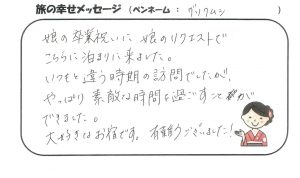 旅の幸せメッセージ (ペンネーム: グリクムシ )
娘の卒業祝いに 娘のリクエストで
こちらに泊まりに来ました。
いつもと違う時期の訪問でしたが、
やっぱり 素敵な時間を過ごすことが
できました。
大好きなお宿です。有難うございました!